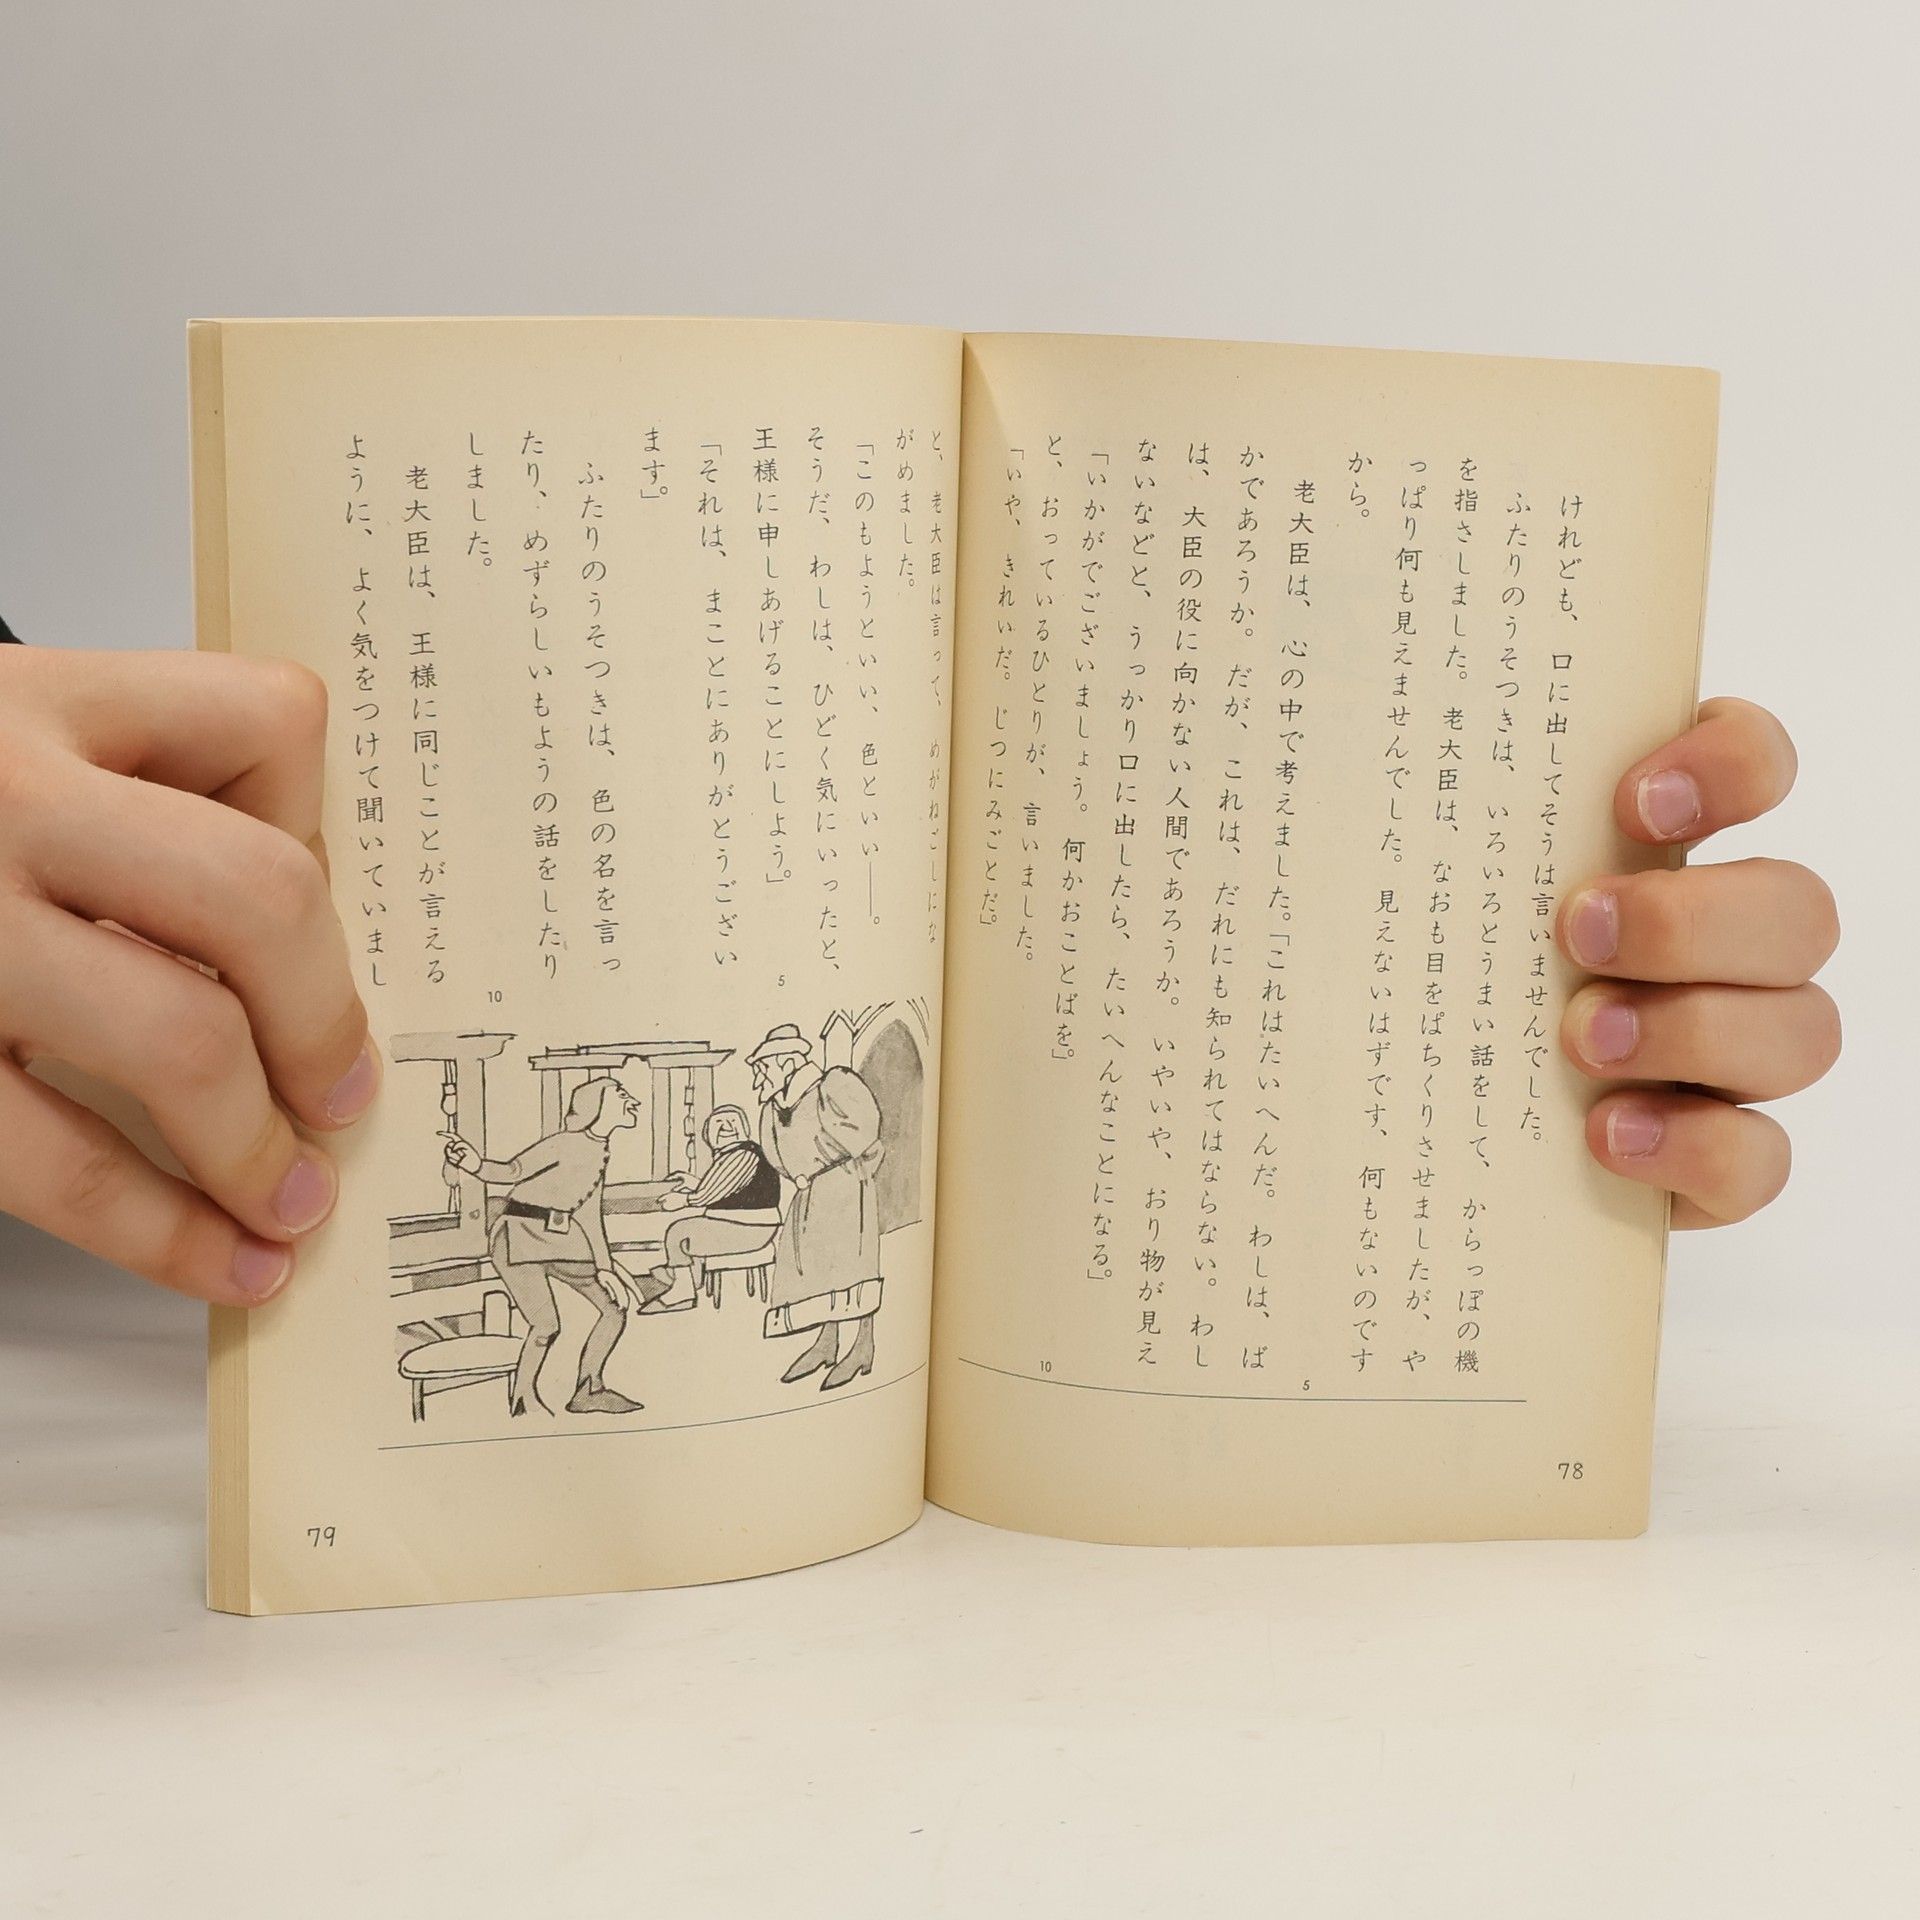 けれども、口に出してそうは言いませんでした。
ふたりのうそつきは、いろいろとうまい話をして、からっぽの機
を指さしました。老大臣は、なおも目をぱちくりさせましたが、や
っぱり何も見えませんでした。見えないはずです、何もないのです
から。
老大臣は、心の中で考えました。「これはたいへんだ。わしは、ば
かであろうか。だが、これは、だれにも知られてはならない。わし
は、大臣の役に向かない人間であろうか。いやいや、おり物が見え
ないなどと、うっかり口に出したら、たいへんなことになる。」
「いかがでございましょう。何かおことばを。」
と、おっているひとりが、言いました。
「いや、きれいだ。じつにみごとだ。」
5
10
78
と、老大臣は言って、めがねごしにな
がめました。
「このもようといい、色といい――。
そうだ、わしは、ひどく気にいったと、
王様に申しあげることにしよう。」
「それは、まことにありがとうござい
ます。」
ふたりのうそつきは、色の名を言っ
たり、めずらしいもようの話をしたり
しました。
老大臣は、王様に同じことが言える
ように、よく気をつけて聞いていまし
5
10
79